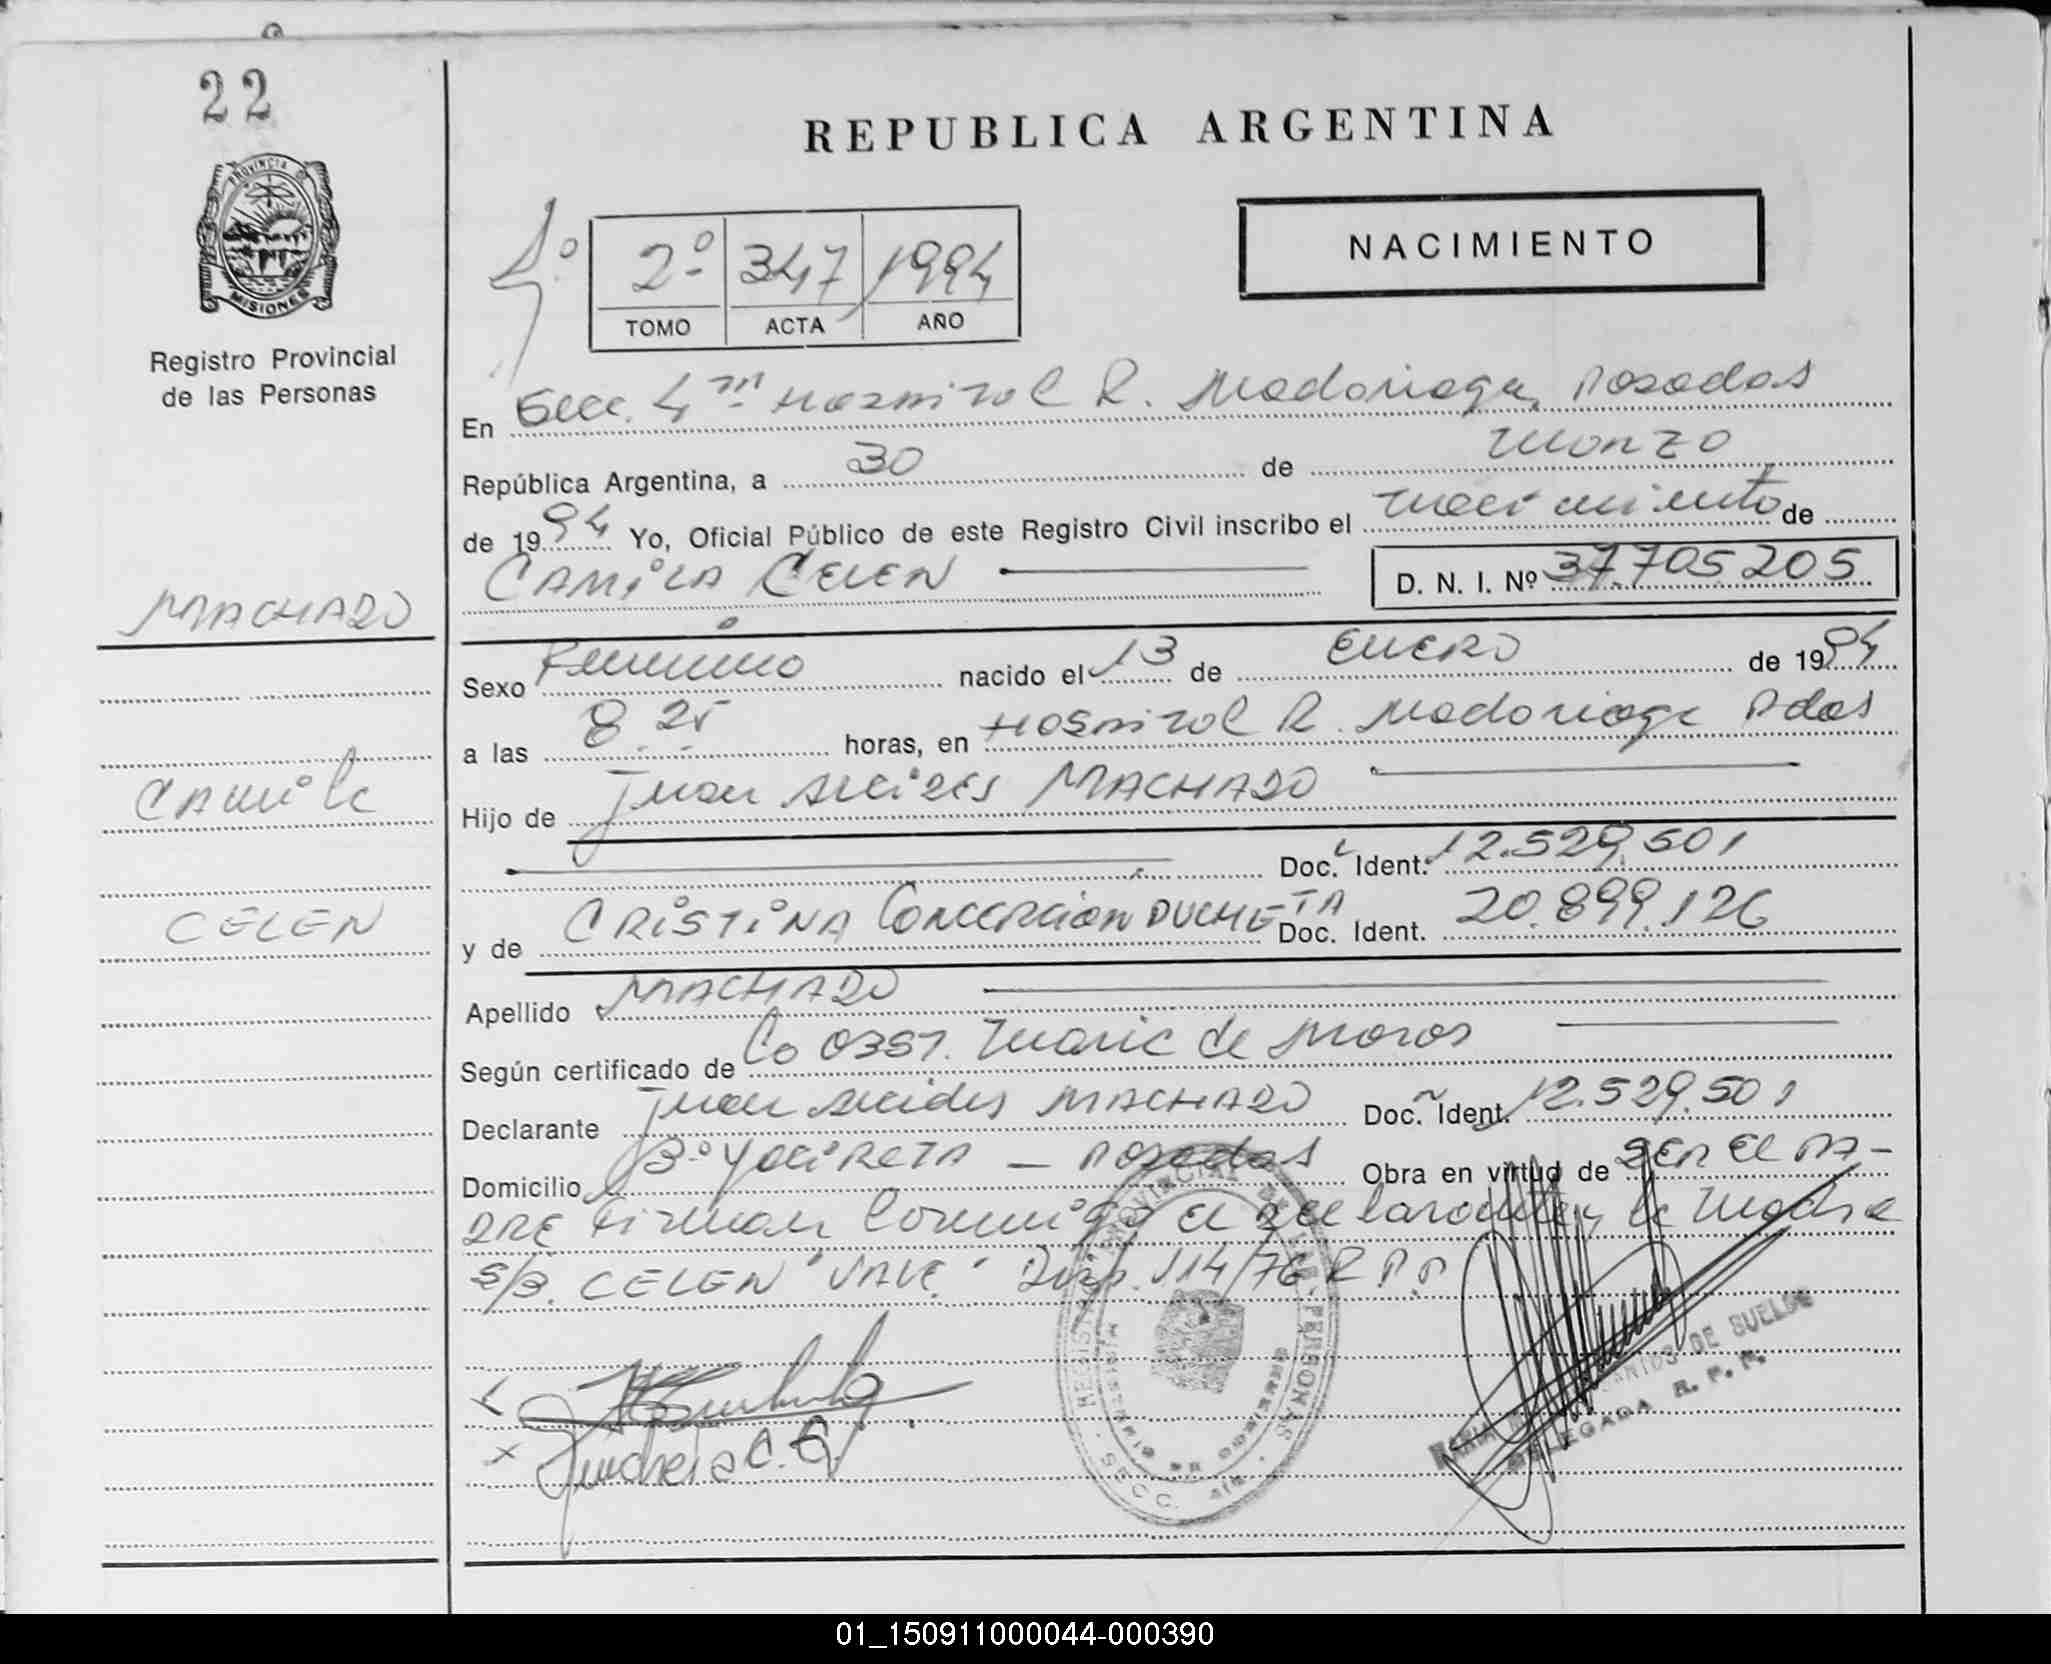 22
REPUBLICA ARGENTINA
PROVINCIA DE
MISIONES
Registro Provincial
de las Personas
4º
2º 347 1994
TOMO ACTA AÑO
NACIMIENTO
En Secc. 4ta Hospital R. Madariaga, Posadas
República Argentina, a 30 de Marzo
de 1994 Yo, Oficial Público de este Registro Civil inscribo el nacimiento de
CAMILA CELEN D. N. I. Nº 37.705.205
MACHADO
Sexo Femenino nacido el 13 de ENERO de 1994
a las 8.25 horas, en Hospital R. Madariaga Pdas
Camila
Hijo de Juan Alcides MACHADO
Doc. Ident. 12.529.501
CELEN
y de CRISTINA Concepcion DUCHETA Doc. Ident. 20.899.126
Apellido MACHADO
Según certificado de La Obst. Maria de Moros
Declarante Juan Alcides MACHADO Doc. Ident. 12.529.501
Domicilio Bº Yacireta - Posadas Obra en virtud de ser el PA-
DRE Firman Conmigo el declarante y la Madre
S/B. CELEN "VALE" Disp. 114/76 R.P.P.
REGISTRO PROVINCIAL DE LAS PERSONAS
MINISTERIO DE GOBIERNO
SECC.
DE SUELDO
DELEGADA R. P. P.
01_150911000044-000390